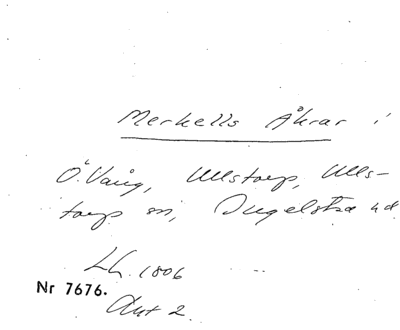 Merkells Åkrar i
Ö. Vång, Ullstorp, Ulls-
torp sn, Ingelsta hd
Lh. 1806
Nr 7676.
Akt 2